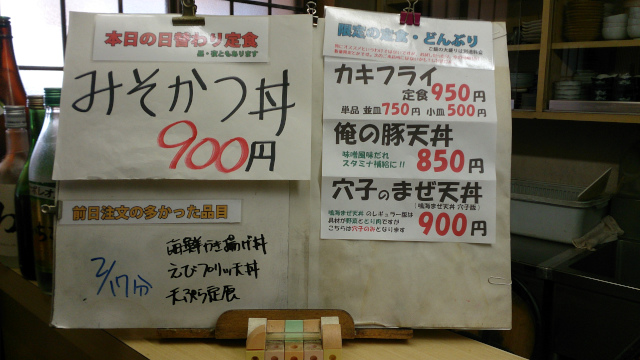 本日の日替わり定食
昼・夜ともあります
みそかつ丼
900円
前日注文の多かった品目
2/17分
海鮮かき揚げ丼
えびプリッ天丼
天ぷら定食
限定の定食・どんぶり
カキフライ
定食950円
単品 並皿750円 小皿500円
俺の豚天丼
味噌風味だれ
スタミナ補給に!!
850円
穴子のまぜ天丼
(鳴海まぜ天丼 穴子版)
鳴海まぜ天丼のレギュラー版は
具材が野菜ととり肉ですが
こちらは穴子のみとなります
900円